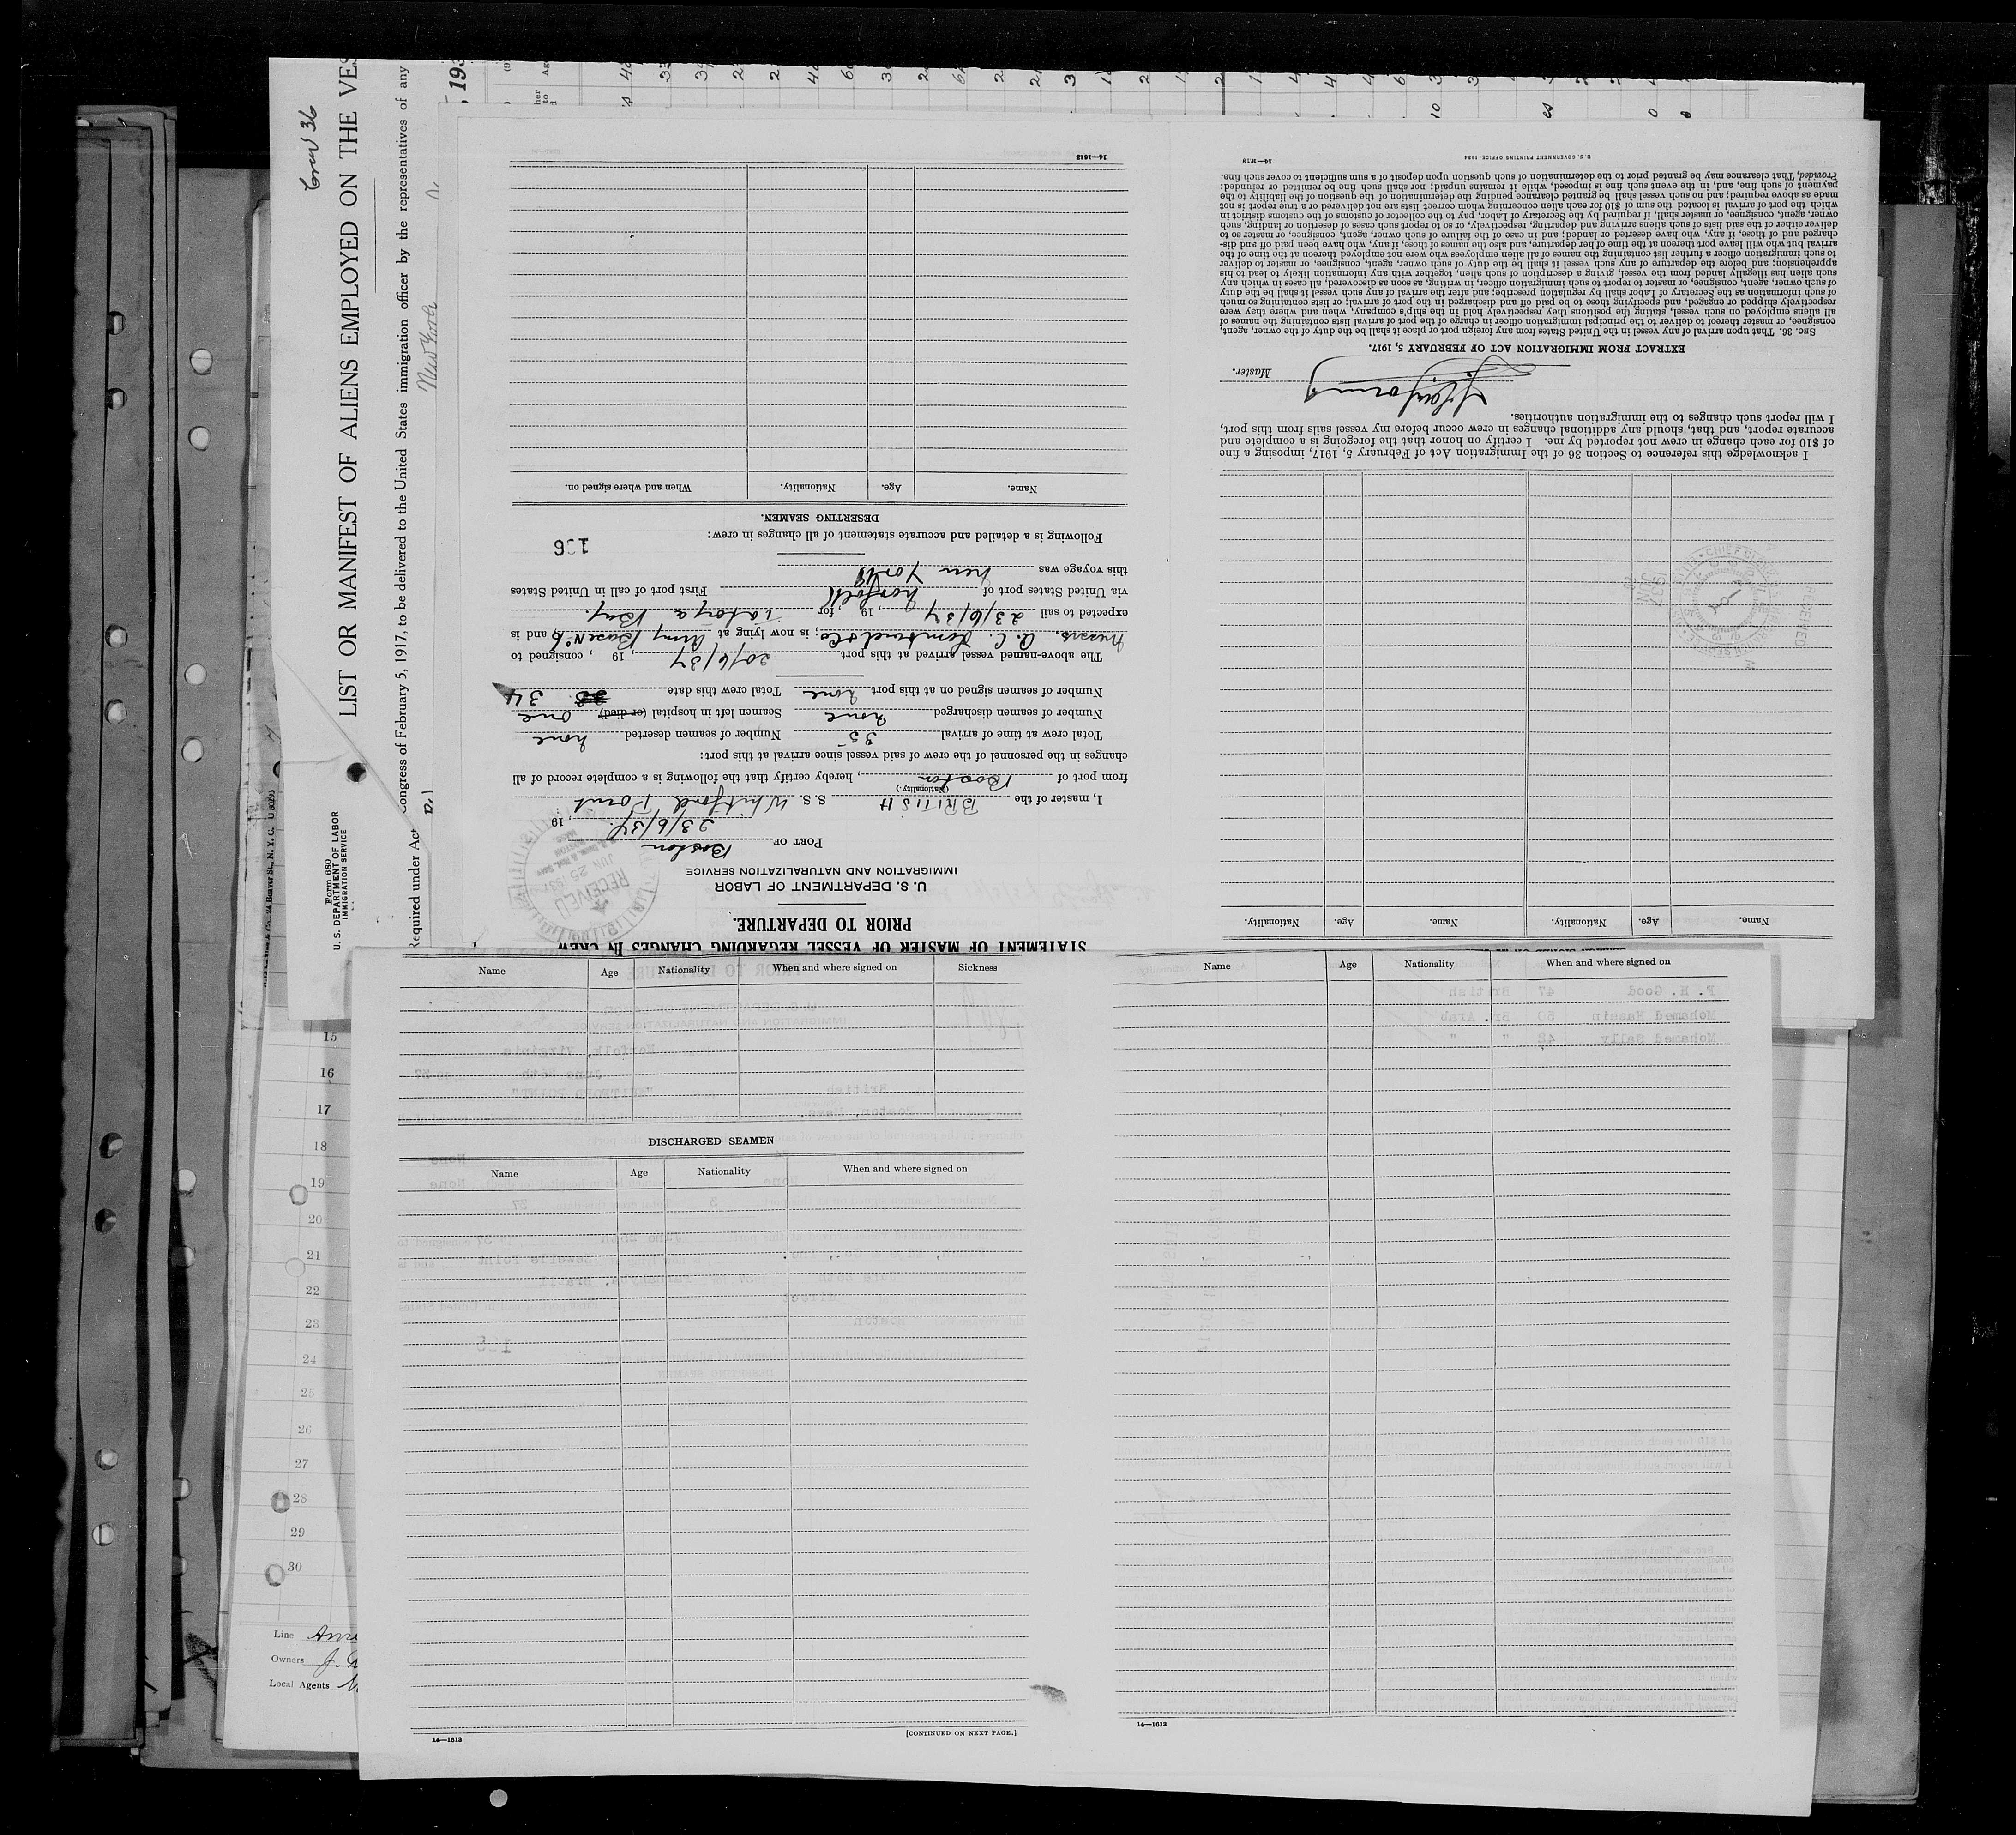 Crew 36
LIST OR MANIFEST OF ALIENS EMPLOYED ON THE VES
ongress of February 5, 1917, to be delivered to the United States immigration officer by the representatives of any
Required under Act
New York
, 193
Form 680
U. S. DEPARTMENT OF LABOR
IMMIGRATION SERVICE
STATEMENT OF MASTER OF VESSEL REGARDING CHANGES IN CREW
PRIOR TO DEPARTURE.
U. S. DEPARTMENT OF LABOR
IMMIGRATION AND NATURALIZATION SERVICE
PORT OF Boston
23/6/37, 19
RECEIVED
JUN 25 1937
I, master of the BRITISH S. S. Whitford Point
(Nationality.)
from port of Boston, hereby certify that the following is a complete record of all
changes in the personnel of the crew of said vessel since arrival at this port:
Total crew at time of arrival 35 Number of seamen deserted none
Number of seamen discharged none Seamen left in hospital (or died) one
Number of seamen signed on at this port none Total crew this date 34
The above-named vessel arrived at this port 20/6/37, 19 , consigned to
Messrs. A. C. Lombard & Co; is now lying at Army Base No 6, and is
expected to sail 23/6/37, 19 , for Bay.
via United States port of Norfolk First port of call in United States
this voyage was New York
Following is a detailed and accurate statement of all changes in crew:
136
DESERTING SEAMEN.
Name. Age. Nationality. When and where signed on.
14—1613
Name. Age. Nationality. Name. Age. Nationality.
RECEIVED
JUN
1937
I acknowledge this reference to Section 36 of the Immigration Act of February 5, 1917, imposing a fine
of $10 for each change in crew not reported by me. I certify on honor that the foregoing is a complete and
accurate report, and that, should any additional changes in crew occur before my vessel sails from this port,
I will report such changes to the immigration authorities.
Master.
EXTRACT FROM IMMIGRATION ACT OF FEBRUARY 5, 1917.
SEC. 36. That upon arrival of any vessel in the United States from any foreign port or place it shall be the duty of the owner, agent,
consignee, or master thereof to deliver to the principal immigration officer in charge of the port of arrival lists containing the names of
all aliens employed on such vessel, stating the positions they respectively hold in the ship's company, when and where they were
respectively shipped or engaged, and specifying those to be paid off and discharged in the port of arrival; or lists containing so much
of such information as the Secretary of Labor shall by regulation prescribe; and after the arrival of any such vessel it shall be the duty
of such owner, agent, consignee, or master to report to such immigration officer, in writing, as soon as discovered, all cases in which any
such alien has illegally landed from the vessel, giving a description of such alien, together with any information likely to lead to his
apprehension; and before the departure of any such vessel it shall be the duty of such owner, agent, consignee, or master to deliver
to such immigration officer a further list containing the names of all alien employees who were not employed thereon at the time of the
arrival but who will leave port thereon at the time of her departure, and also the names of those, if any, who have been paid off and dis-
charged and of those, if any, who have deserted or landed; and in case of the failure of such owner, agent, consignee, or master so to
deliver either of the said lists of such aliens arriving and departing, respectively, or so to report such cases of desertion or landing, such
owner, agent, consignee, or master shall, if required by the Secretary of Labor, pay to the collector of customs of the customs district in
which the port of arrival is located the sum of $10 for each alien concerning whom correct lists are not delivered or a true report is not
made as above required; and no such vessel shall be granted clearance pending the determination of the question of the liability to the
payment of such fine, and, in the event such fine is imposed, while it remains unpaid; nor shall such fine be remitted or refunded:
Provided, That clearance may be granted prior to the determination of such question upon deposit of a sum sufficient to cover such fine.
U. S. GOVERNMENT PRINTING OFFICE: 1934
14—1613
Name Age Nationality When and where signed on Sickness
DISCHARGED SEAMEN
Name Age Nationality When and where signed on
[CONTINUED ON NEXT PAGE.]
14—1613
Name Age Nationality When and where signed on
F. H. Good 47 British
Mohamed Hassin 50 Br. Arab
Mohamed Sally 48 " "
14—1613
15
16
17
18
19
20
21
22
23
24
25
26
27
28
29
30
Line
Owners J.
Local Agents